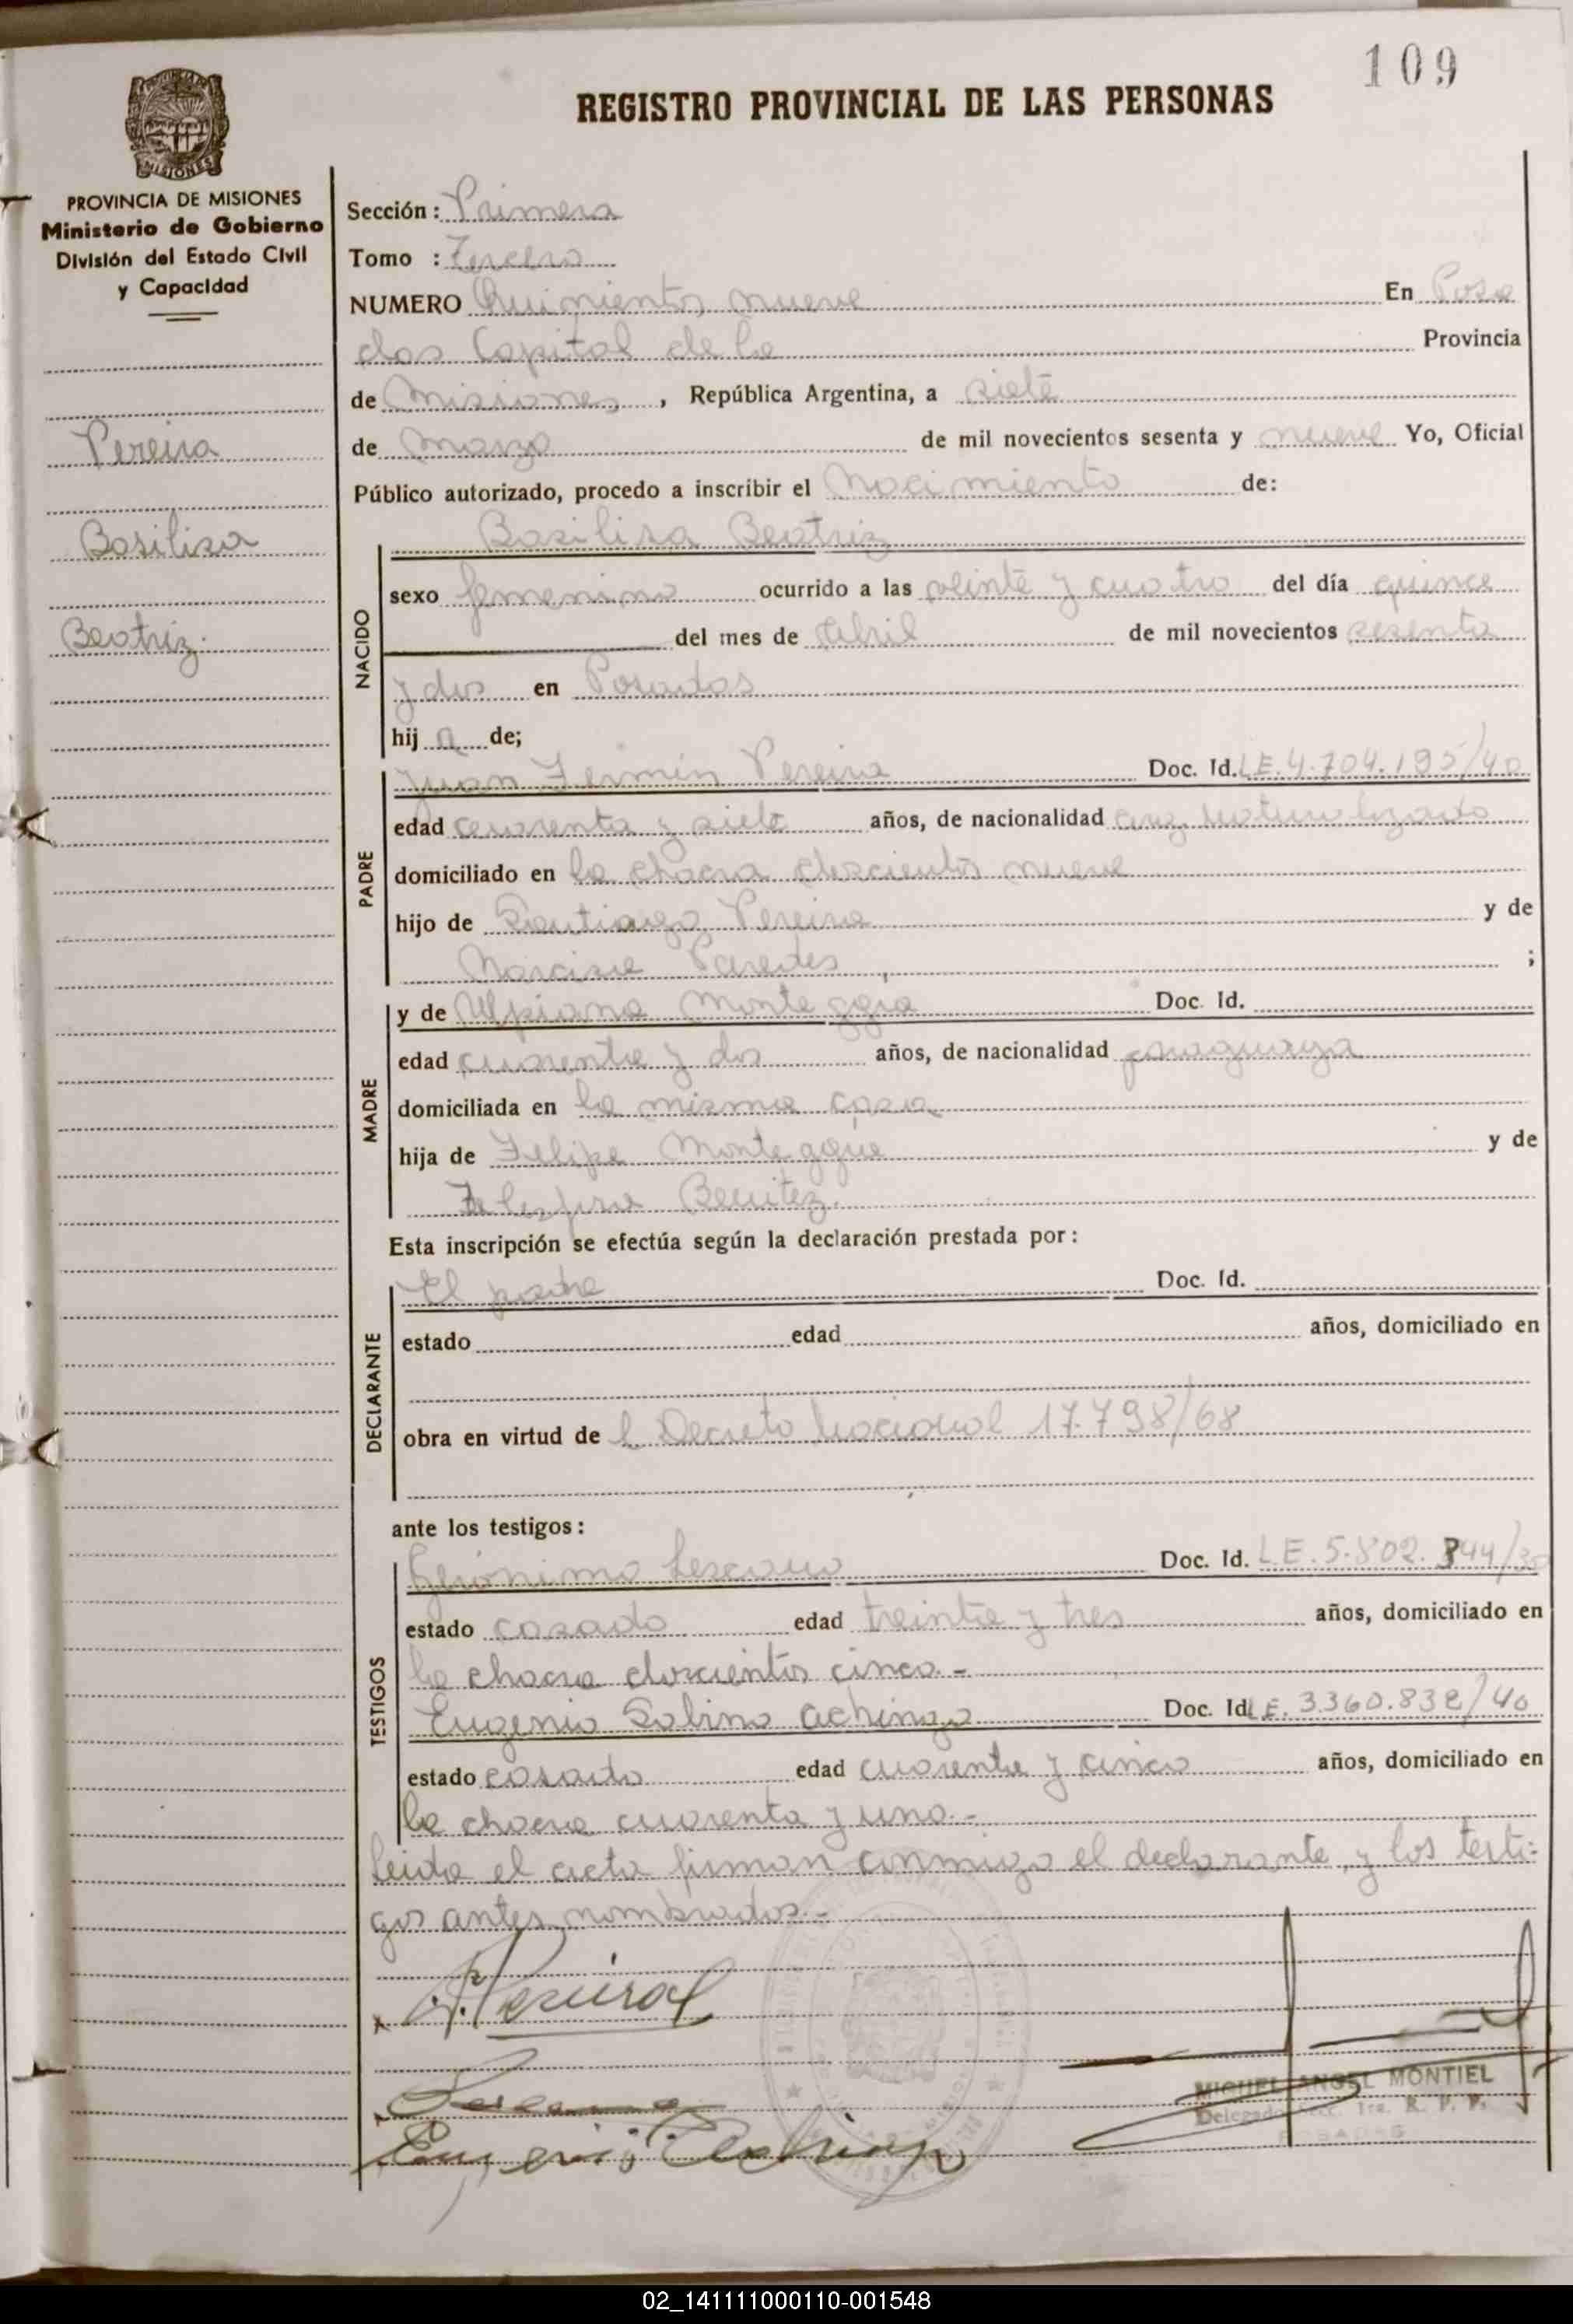 109
REGISTRO PROVINCIAL DE LAS PERSONAS
MISIONES
PROVINCIA DE MISIONES
Ministerio de Gobierno
División del Estado Civil
y Capacidad
Pereira
Basilisa
Beatriz.
Sección: Primera
Tomo : Tercero
NUMERO Quinientos nueve En Posa
das Capital de la Provincia
de Misiones, República Argentina, a siete
de Marzo de mil novecientos sesenta y nueve Yo, Oficial
Público autorizado, procedo a inscribir el Nacimiento de:
NACIDO
Basilisa Beatriz
sexo femenino ocurrido a las veinte y cuatro del día quince
del mes de Abril de mil novecientos sesenta
y dos en Posadas
hij a de;
PADRE
Juan Fermín Pereira Doc. Id. L.E. 4.704.195/40
edad cuarenta y siete años, de nacionalidad arg. naturalizado
domiciliado en la chacra doscientos nueve
hijo de Santiago Pereira y de
Narcisa Paredes ;
MADRE
y de Ulpiana Monteggia Doc. Id.
edad cuarenta y dos años, de nacionalidad paraguaya
domiciliada en la misma casa
hija de Felipe y de
Benitez.
Esta inscripción se efectúa según la declaración prestada por:
DECLARANTE
El padre Doc. Id.
estado edad años, domiciliado en
obra en virtud de l Decreto Nacional 17.798/68
ante los testigos:
TESTIGOS
Gerónimo Lescano Doc. Id. L.E. 5.802.
estado casado edad treinta y tres años, domiciliado en
la chacra doscientos cinco.-
Eugenio Sabino Achingo Doc. Id. L.E. 3.360.832/40
estado casado edad cuarenta y cinco años, domiciliado en
la chacra cuarenta y uno.-
leida el acta firman conmigo el declarante, y los testi-
gos antes nombrados.-
MIGUEL ANGEL MONTIEL
Delegado Secc. 1ra. R. P. P.
POSADAS
02_141111000110-001548